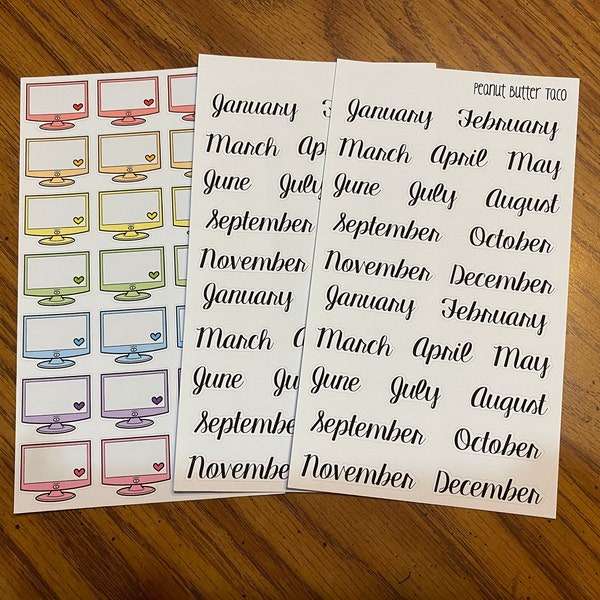 Peanut Butter Taco
January February
March April May
June July August
September October
November December
January February
March April May
June July August
September October
November December
January F
March Ap
June July
September
November
January
March Ap
June Ju
September
November